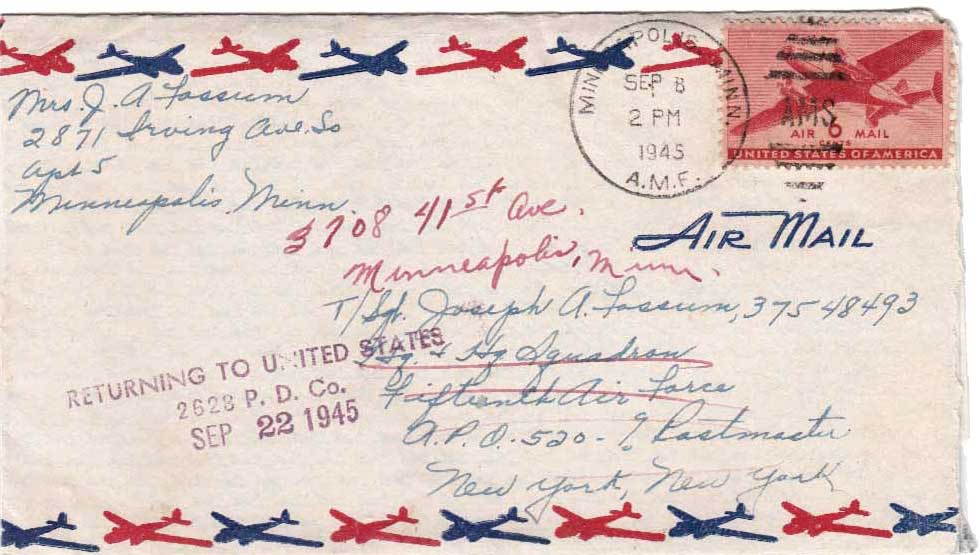 Mrs. J. A. Fossum
2871 Irving Ave. So
Apt 5
Minneapolis Minn.
MINNEAPOLIS MINN.
SEP 8
2 PM
1945
A.M.F.
AMS
AIR 6¢ MAIL
UNITED STATES OF AMERICA
AIR MAIL
3708 41st Ave.
Minneapolis, Minn.
T/Sgt. Joseph A. Fossum, 37548493
Hq. & Hq Squadron
Fifteenth Air Force
A.P.O. 520 - % Postmaster
New York, New York
RETURNING TO UNITED STATES
2628 P. D. Co.
SEP 22 1945